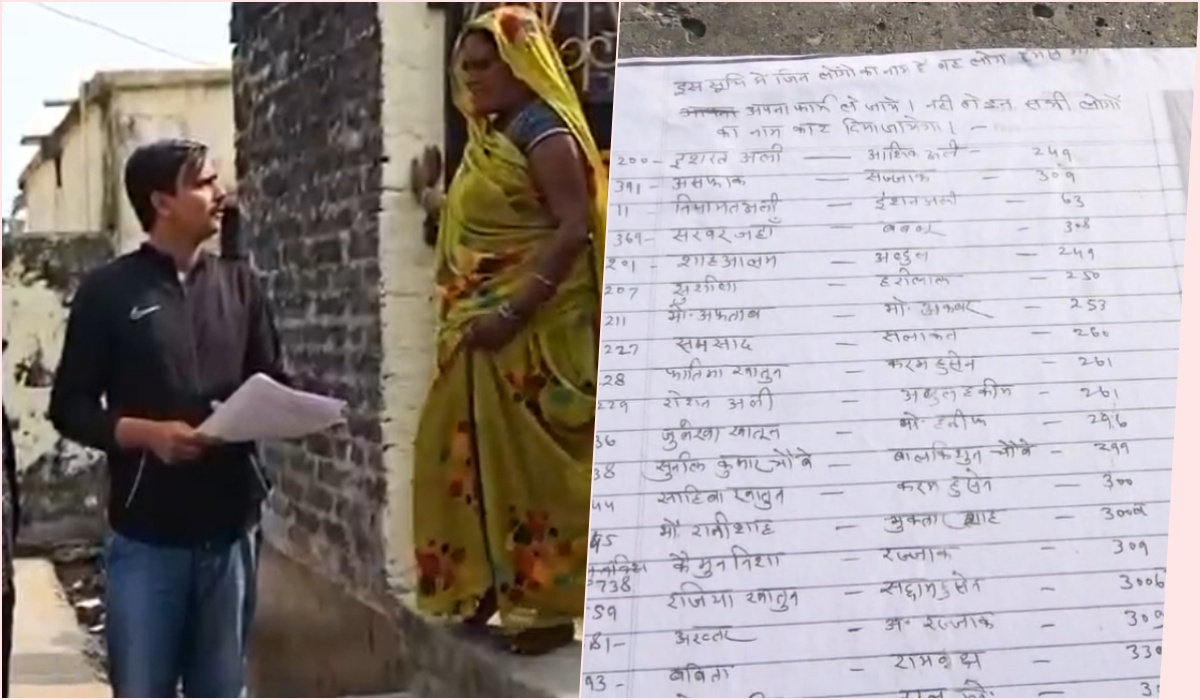 इस सूचि मे जिन लोगों का नाम है वह लोग
अपना फार्म ले जाये। नही तो इन सभी लोगों
का नाम काट दिया जायेगा। —
200 - इशरत अली — आशिक अली - 249
391 - असफाक — सज्जाक — 309
11 - नियामत अली — ईशन अली — 63
369 - सरवर जहाँ — — 308
201 - शाह आलम — अब्दुल — 249
207 — हरीलाल — 250
211 मो. अफताब — मो. अकबर — 253
227 समसाद — सलाकत — 260
28 फातिमा खातुन — करम हुसेन — 261
229 रोशन अली — अब्दुल हकीम — 261
36 जुलेखा खातून — मो. हनीफ — 296
38 सुनील कुमार चौबे — बालकिशुन चौबे — 299
44 साहिबा खातुन — करम हुसेन — 300
45 मो. रानीशाह — मुक्ता शाह — 300
738 कैमुन निशा — रज्जाक — 309
59 रजिया खातुन — सद्दाम हुसेन — 3006
81 - अख्तर — अ. रज्जाक — 309
93 - बबिता — रामवृक्ष — 330